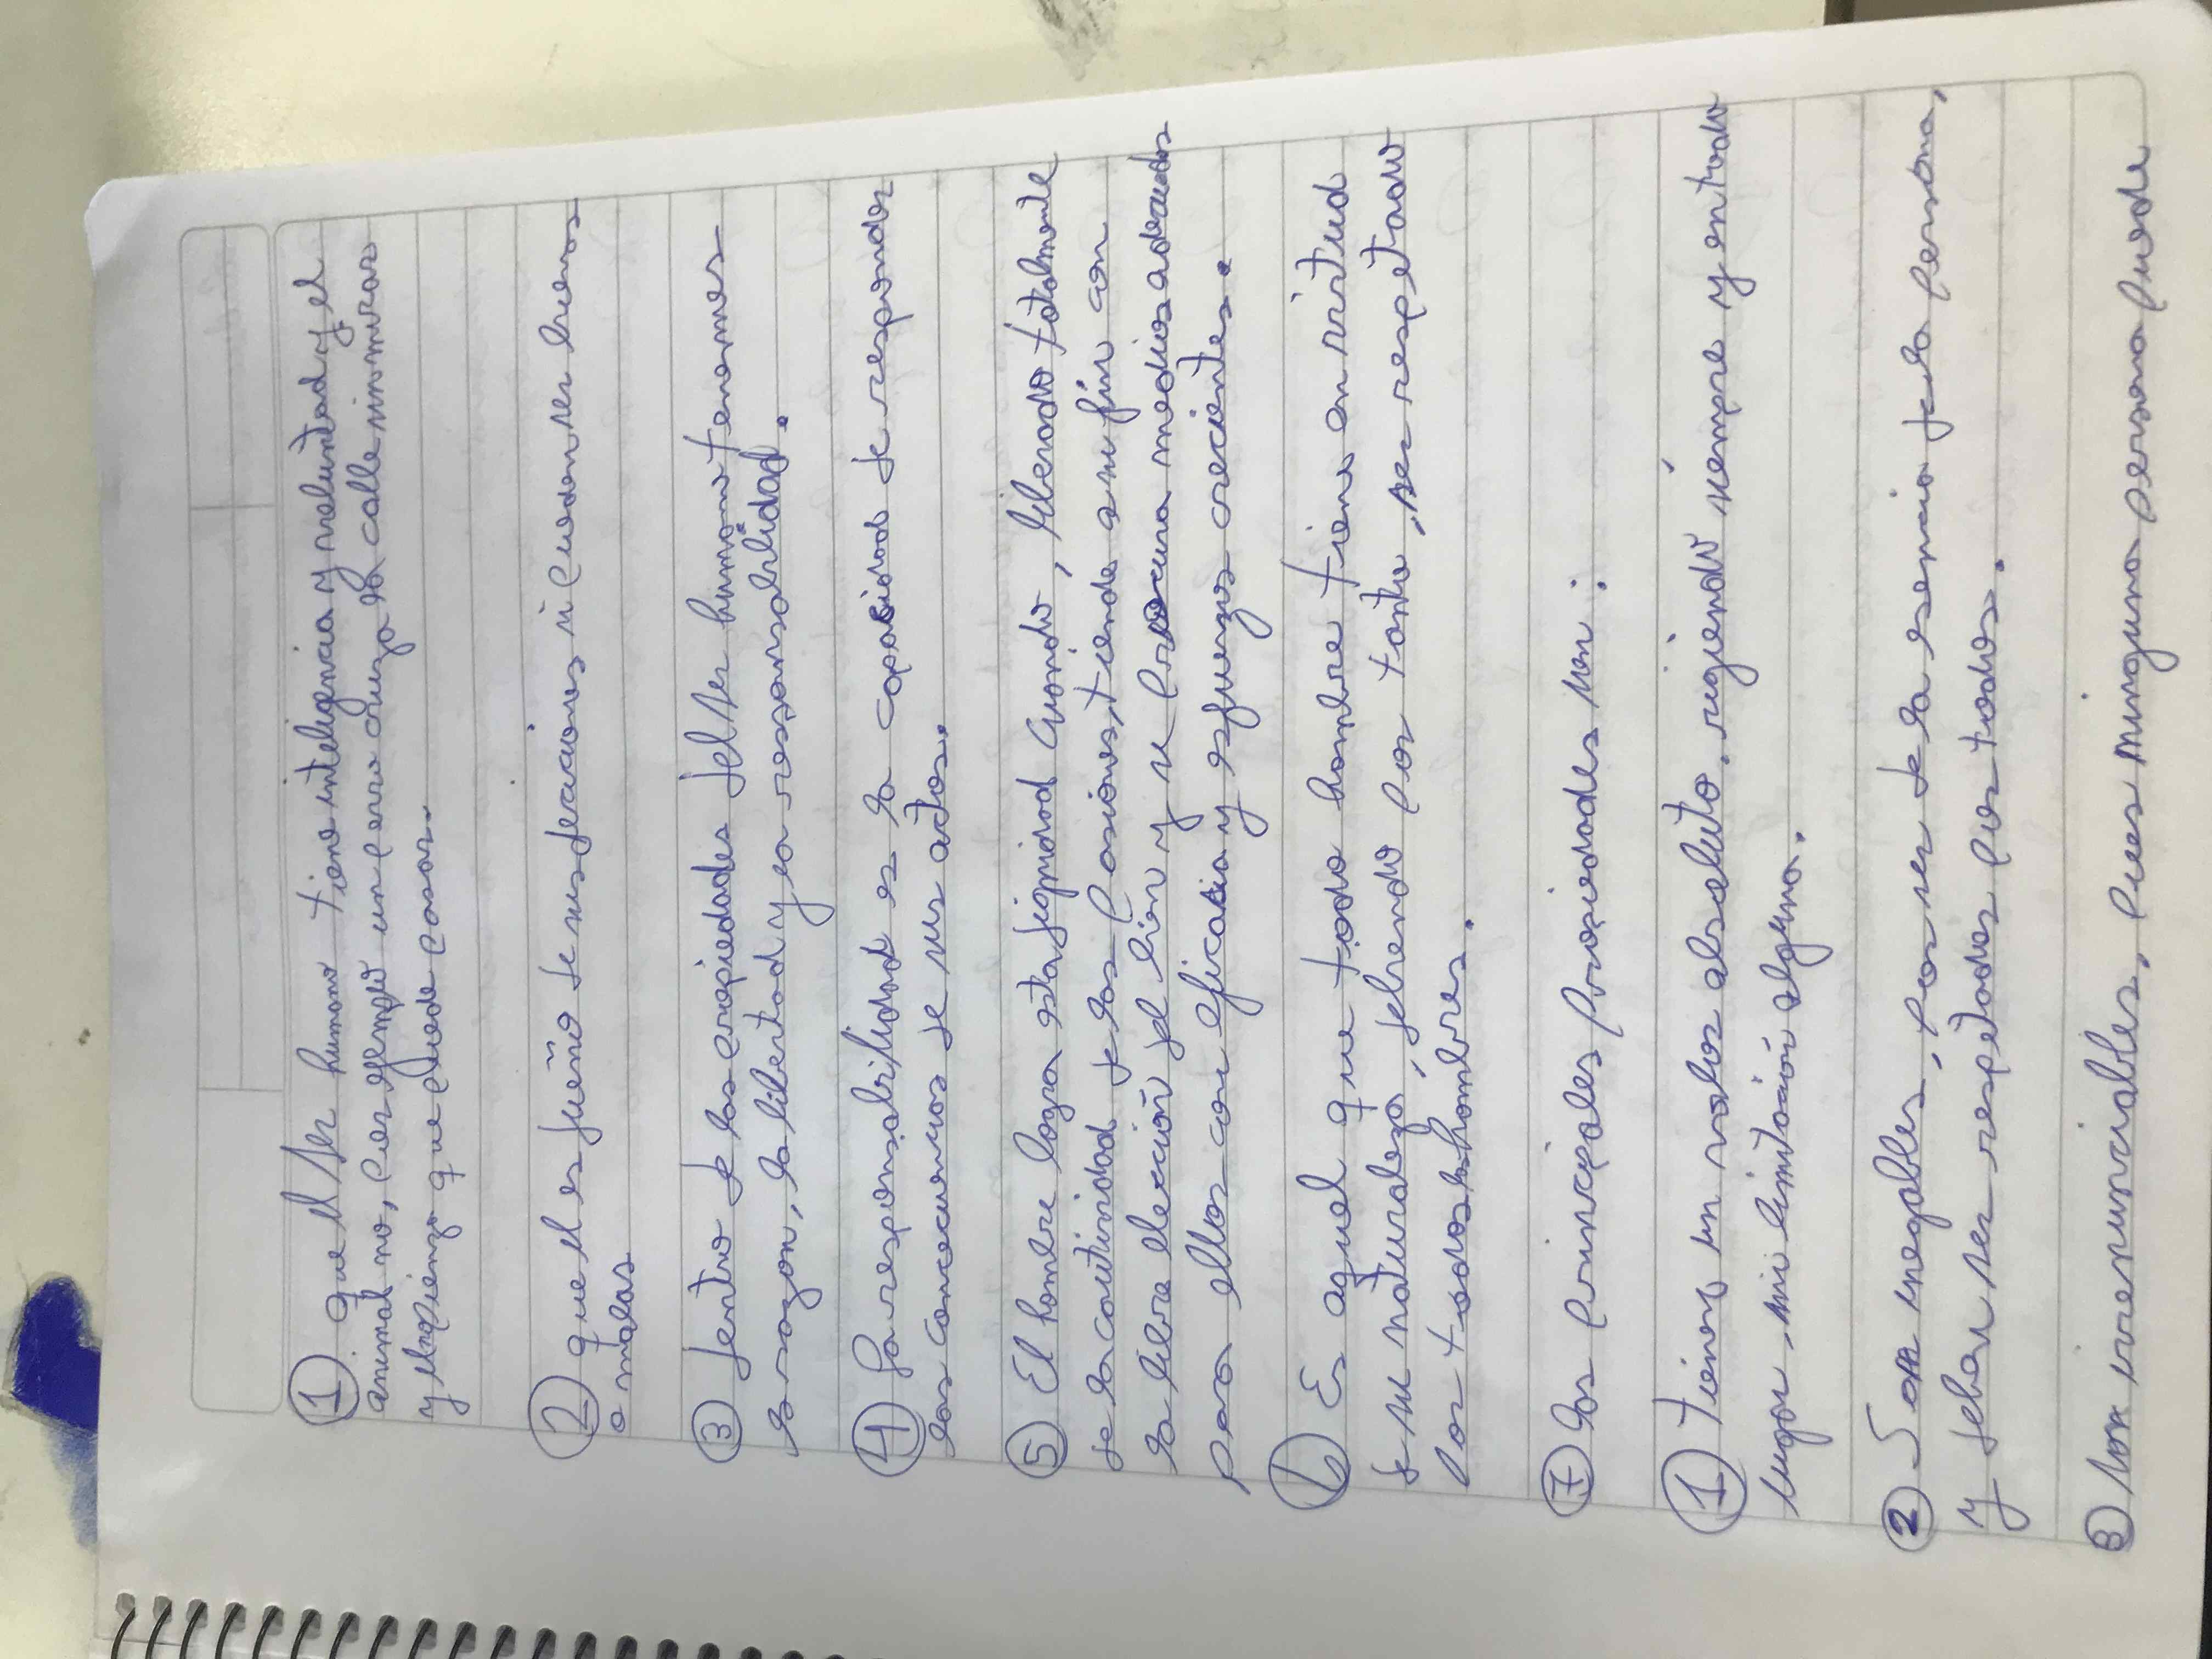 ① que el ser humano tiene inteligencia y voluntad y el
animal no, por ejemplo un perro cruza la calle sin mirar
y no piensa que puede pasar.
② que el es dueño de sus decisiones si pueden ser buenas
o malas
③ dentro de las propiedades del ser humano tenemos
la razon, la libertad y la responsabilidad.
④ La responsabilidad es la capacidad de responder
las concecuencias de sus actos.
⑤ El hombre logra esta dignidad cuando, liberado totalmente
de la cautividad de las pasiones, tiende a su fin con
la libre elección del bien y se procura medios adecuados
para ellos con eficacia y esfuerzos crecientes.
⑥ Es aquel que todo hombre tiene en virtud
de su naturaleza, debiendo por tanto, ser respetado
por todos los hombres.
⑦ Las principales propiedades son:
① tienen un valor absoluto, rigiendo siempre y en todo
lugar, sin limitación alguna.
② Son innegables, por ser de la esencia de la persona,
y deben ser respetados por todos.
③ son irrenunciables, pues ninguna persona puede